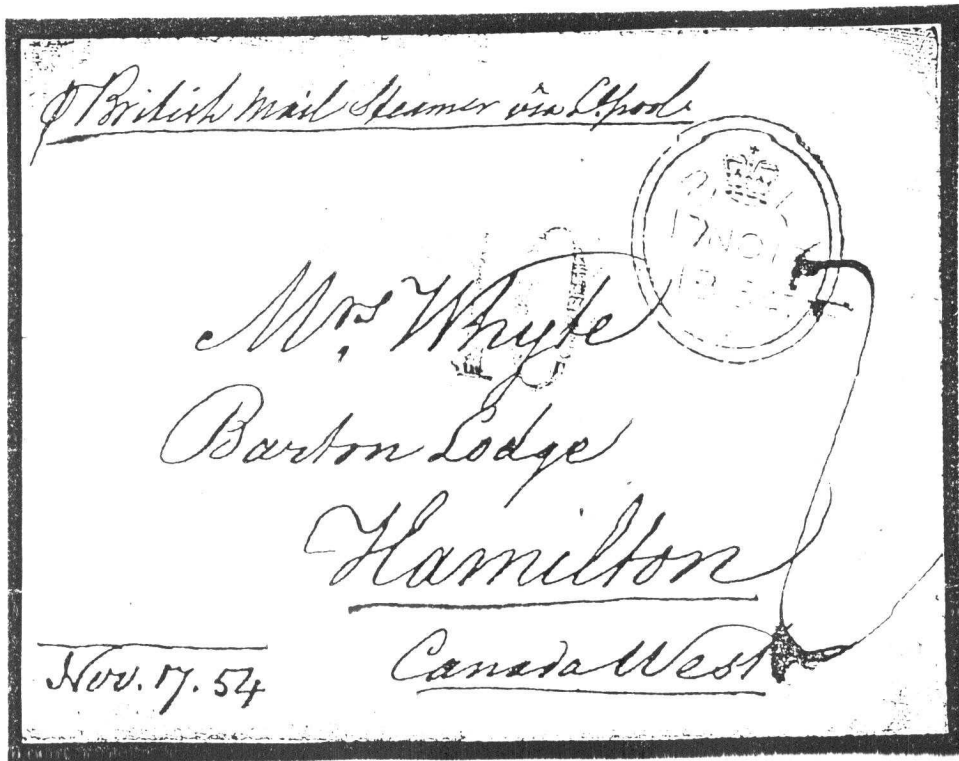 ⅌ British Mail Steamer via L.pool
17 NO 17
1854
10
Mrs Whyte
Barton Lodge
Hamilton
Canada West
Nov. 17. 54